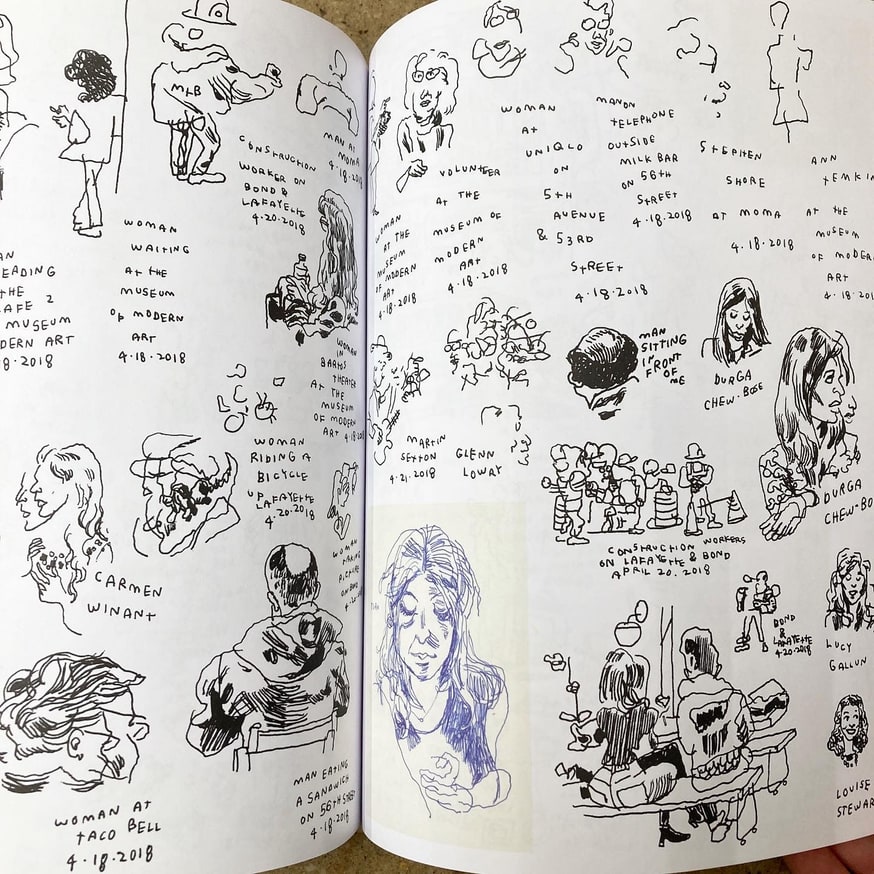 MLB
CONSTRUCTION
WORKER ON
BOND &
LAFAYETTE
4·20·2018
MAN AT
MOMA
4·18·2018
WOMAN
WAITING
AT THE
MUSEUM
OF MODERN
ART
4·18·2018
EADING
THE
AFE 2
MUSEUM
DERN ART
8·2018
WOMAN
IN
BARTOS
THEATER
AT THE
MUSEUM
OF MODERN
ART 4·18·2018
WOMAN
RIDING A
BICYCLE
UP LAFAYETTE
4·20·2018
WOMAN
TAKING
A PICTURE
ON BOND
CARMEN
WINANT
WOMAN AT
TACO BELL
4·18·2018
MAN EATING
A SANDWICH
ON 56TH STREET
4·18·2018
WOMAN
AT THE
MUSEUM
OF MODERN
ART
4·18·2018
VOLUNTEER
AT THE
MUSEUM OF
MODERN
ART
4·18·2018
WOMAN
AT
UNIQLO
ON
5TH
AVENUE
& 53RD
STREET
4·18·2018
MAN ON
TELEPHONE
OUTSIDE
MILK BAR
ON 56TH
STREET
4·18·2018
STEPHEN
SHORE
AT MOMA
4·18·2018
ANN
TEMKIN
AT THE
MUSEUM
OF MODERN
ART
4·18·201
MARTIN
SEXTON
4·21·2018
GLENN
LOWRY
MAN
SITTING
IN
FRONT
OF
ME
DURGA
CHEW-BOSE
DURGA
CHEW-BO
CONSTRUCTION WORKERS
ON LAFAYETTE & BOND
APRIL 20, 2018
BOND
&
LAFAYETTE
4·20·2018
LUCY
GALLUN
LOUISE
STEWAR